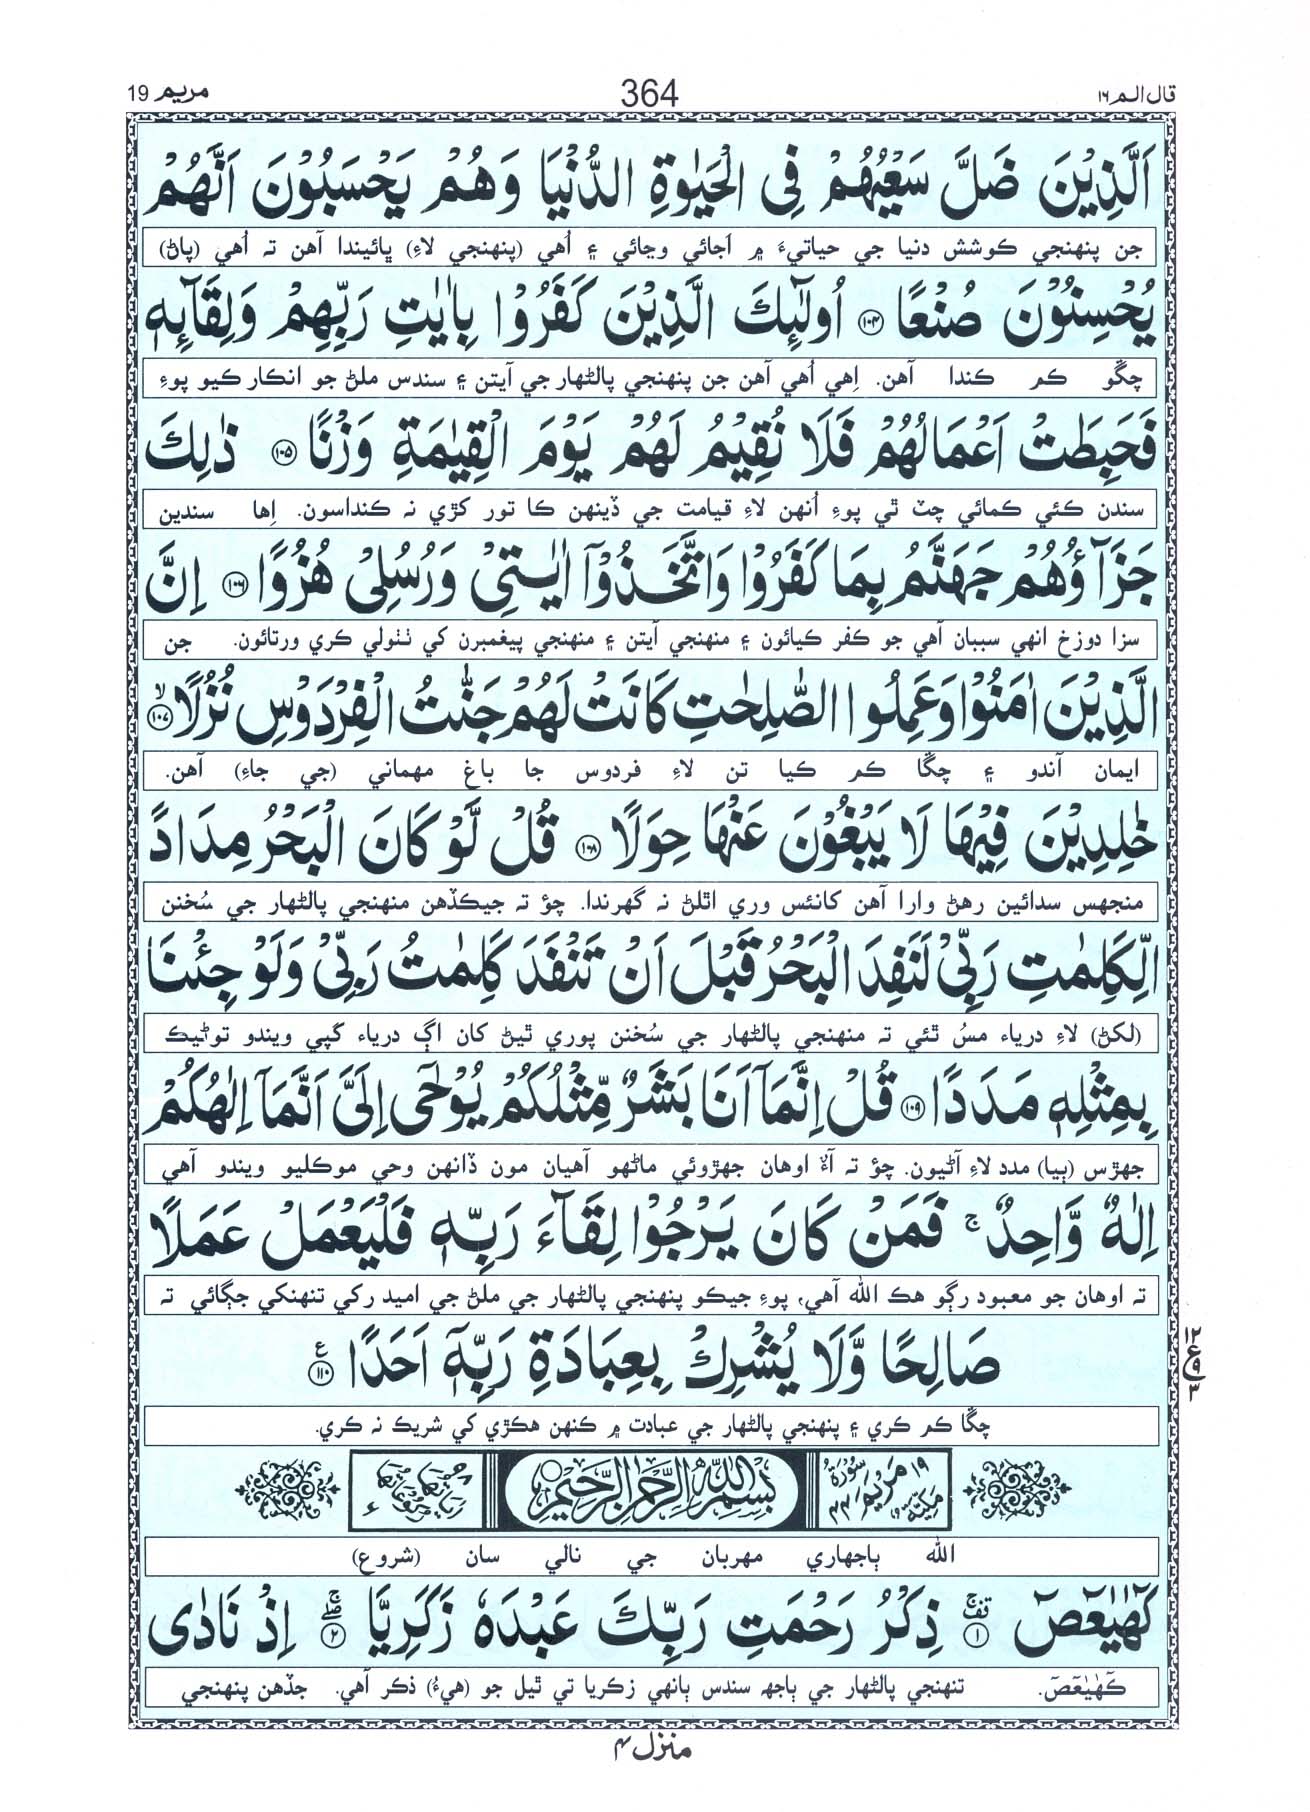 قال الم ١٦
364
مريم 19
اَلَّذِيْنَ ضَلَّ سَعْيُهُمْ فِي الْحَيٰوةِ الدُّنْيَا وَهُمْ يَحْسَبُوْنَ اَنَّهُمْ
جن پنهنجي ڪوشش دنيا جي حياتيءَ ۾ اَجائي وڃائي ۽ اُهي (پنهنجي لاءِ) ڀائيندا آهن تہ اُهي (پاڻ)
يُحْسِنُوْنَ صُنْعًا ۝١٠٤ اُولٰٓئِكَ الَّذِيْنَ كَفَرُوْا بِاٰيٰتِ رَبِّهِمْ وَلِقَآئِهٖ
چڱو ڪم ڪندا آهن. اِهي اُهي آهن جن پنهنجي پالڻهار جي آيتن ۽ سندس ملڻ جو انڪار ڪيو پوءِ
فَحَبِطَتْ اَعْمَالُهُمْ فَلَا نُقِيْمُ لَهُمْ يَوْمَ الْقِيٰمَةِ وَزْنًا ۝١٠٥ ذٰلِكَ
سندن ڪئي ڪمائي چٽ ٿي پوءِ اُنهن لاءِ قيامت جي ڏينهن ڪا تور کڙي نہ ڪنداسون. اِها سندين
جَزَآؤُهُمْ جَهَنَّمُ بِمَا كَفَرُوْا وَاتَّخَذُوْٓا اٰيٰتِيْ وَرُسُلِيْ هُزُوًا ۝١٠٦ اِنَّ
سزا دوزخ انهي سببان آهي جو ڪفر ڪيائون ۽ منهنجي آيتن ۽ منهنجي پيغمبرن کي ٺٺولي ڪري ورتائون. جن
الَّذِيْنَ اٰمَنُوْا وَعَمِلُوا الصّٰلِحٰتِ كَانَتْ لَهُمْ جَنّٰتُ الْفِرْدَوْسِ نُزُلًا ۙ۝١٠٧
ايمان آندو ۽ چڱا ڪم ڪيا تن لاءِ فردوس جا باغ مهماني (جي جاءِ) آهن.
خٰلِدِيْنَ فِيْهَا لَا يَبْغُوْنَ عَنْهَا حِوَلًا ۝١٠٨ قُلْ لَّوْ كَانَ الْبَحْرُ مِدَادًا
منجهس سدائين رهڻ وارا آهن کانئس وري اٿلڻ نہ گهرندا. چؤ تہ جيڪڏهن منهنجي پالڻهار جي سُخنن
لِّكَلِمٰتِ رَبِّيْ لَنَفِدَ الْبَحْرُ قَبْلَ اَنْ تَنْفَدَ كَلِمٰتُ رَبِّيْ وَلَوْ جِئْنَا
(لکڻ) لاءِ درياء مسُ ٿئي تہ منهنجي پالڻهار جي سُخنن پوري ٿيڻ کان اڳ درياء کُپي ويندو توڻيڪ
بِمِثْلِهٖ مَدَدًا ۝١٠٩ قُلْ اِنَّمَآ اَنَا بَشَرٌ مِّثْلُكُمْ يُوْحٰٓى اِلَيَّ اَنَّمَآ اِلٰهُكُمْ
جهڙس (ٻيا) مدد لاءِ آڻيون. چؤ تہ آءٌ اوهان جهڙوئي ماڻهو آهيان مون ڏانهن وحي موڪليو ويندو آهي
اِلٰهٌ وَّاحِدٌ ۚ فَمَنْ كَانَ يَرْجُوْا لِقَآءَ رَبِّهٖ فَلْيَعْمَلْ عَمَلًا
تہ اوهان جو معبود رڳو هڪ الله آهي، پوءِ جيڪو پنهنجي پالڻهار جي ملڻ جي اميد رکي تنهنکي جڳائي تہ
صَالِحًا وَّلَا يُشْرِكْ بِعِبَادَةِ رَبِّهٖٓ اَحَدًا ۝١١٠ ع
١٢ ع ٩ ٣
چڱا ڪم ڪري ۽ پنهنجي پالڻهار جي عبادت ۾ ڪنهن هڪڙي کي شريڪ نہ ڪري.
١٩ سُوْرَةُ مَرْيَمَ مَكِّيَّةٌ ٤٤
بِسْمِ اللهِ الرَّحْمٰنِ الرَّحِيْمِ
الله ٻاجهاري مهربان جي نالي سان (شروع)
كٓهٰيٰعٓصٓ ۝١ ذِكْرُ رَحْمَتِ رَبِّكَ عَبْدَهٗ زَكَرِيَّا ۝٢ اِذْ نَادٰى
كٓهٰيٰعٓصٓ. تنهنجي پالڻهار جي ٻاجهہ سندس ٻانهي زڪريا تي ٿيل جو (هيءُ) ذڪر آهي. جڏهن پنهنجي
منزل ٤